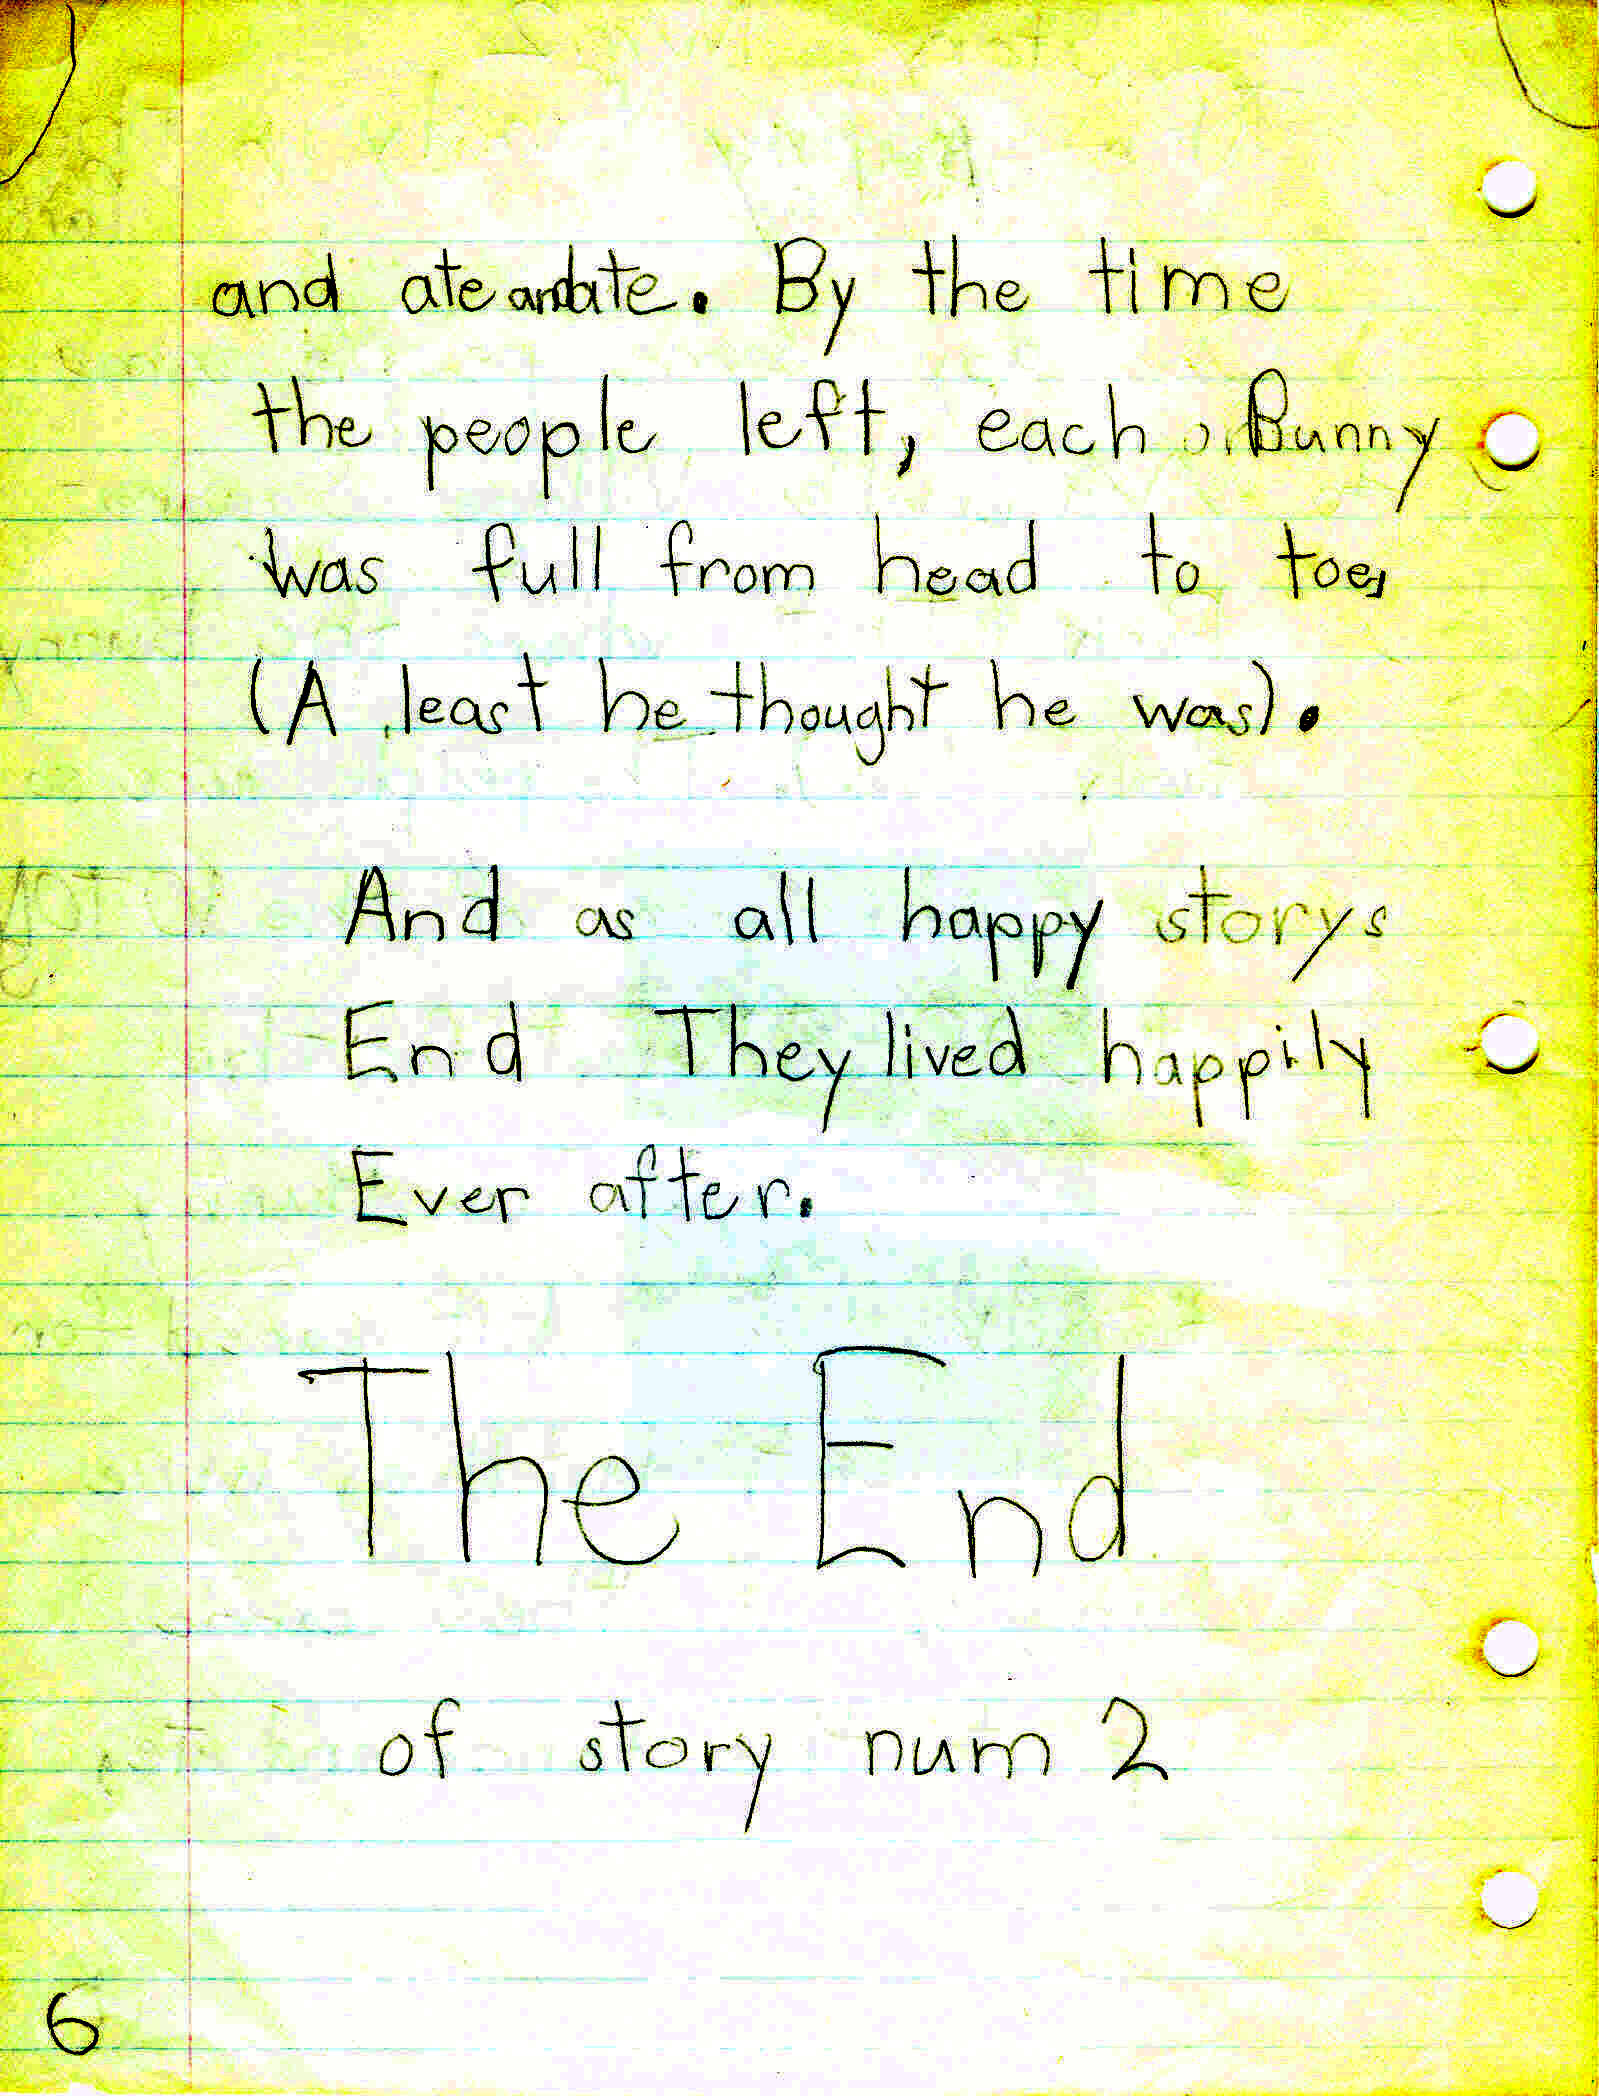 and ate and ate. By the time
the people left, each Bunny
was full from head to toe,
(A least he thought he was).
And as all happy storys
End They lived happily
Ever after.
The End
of story num 2
6